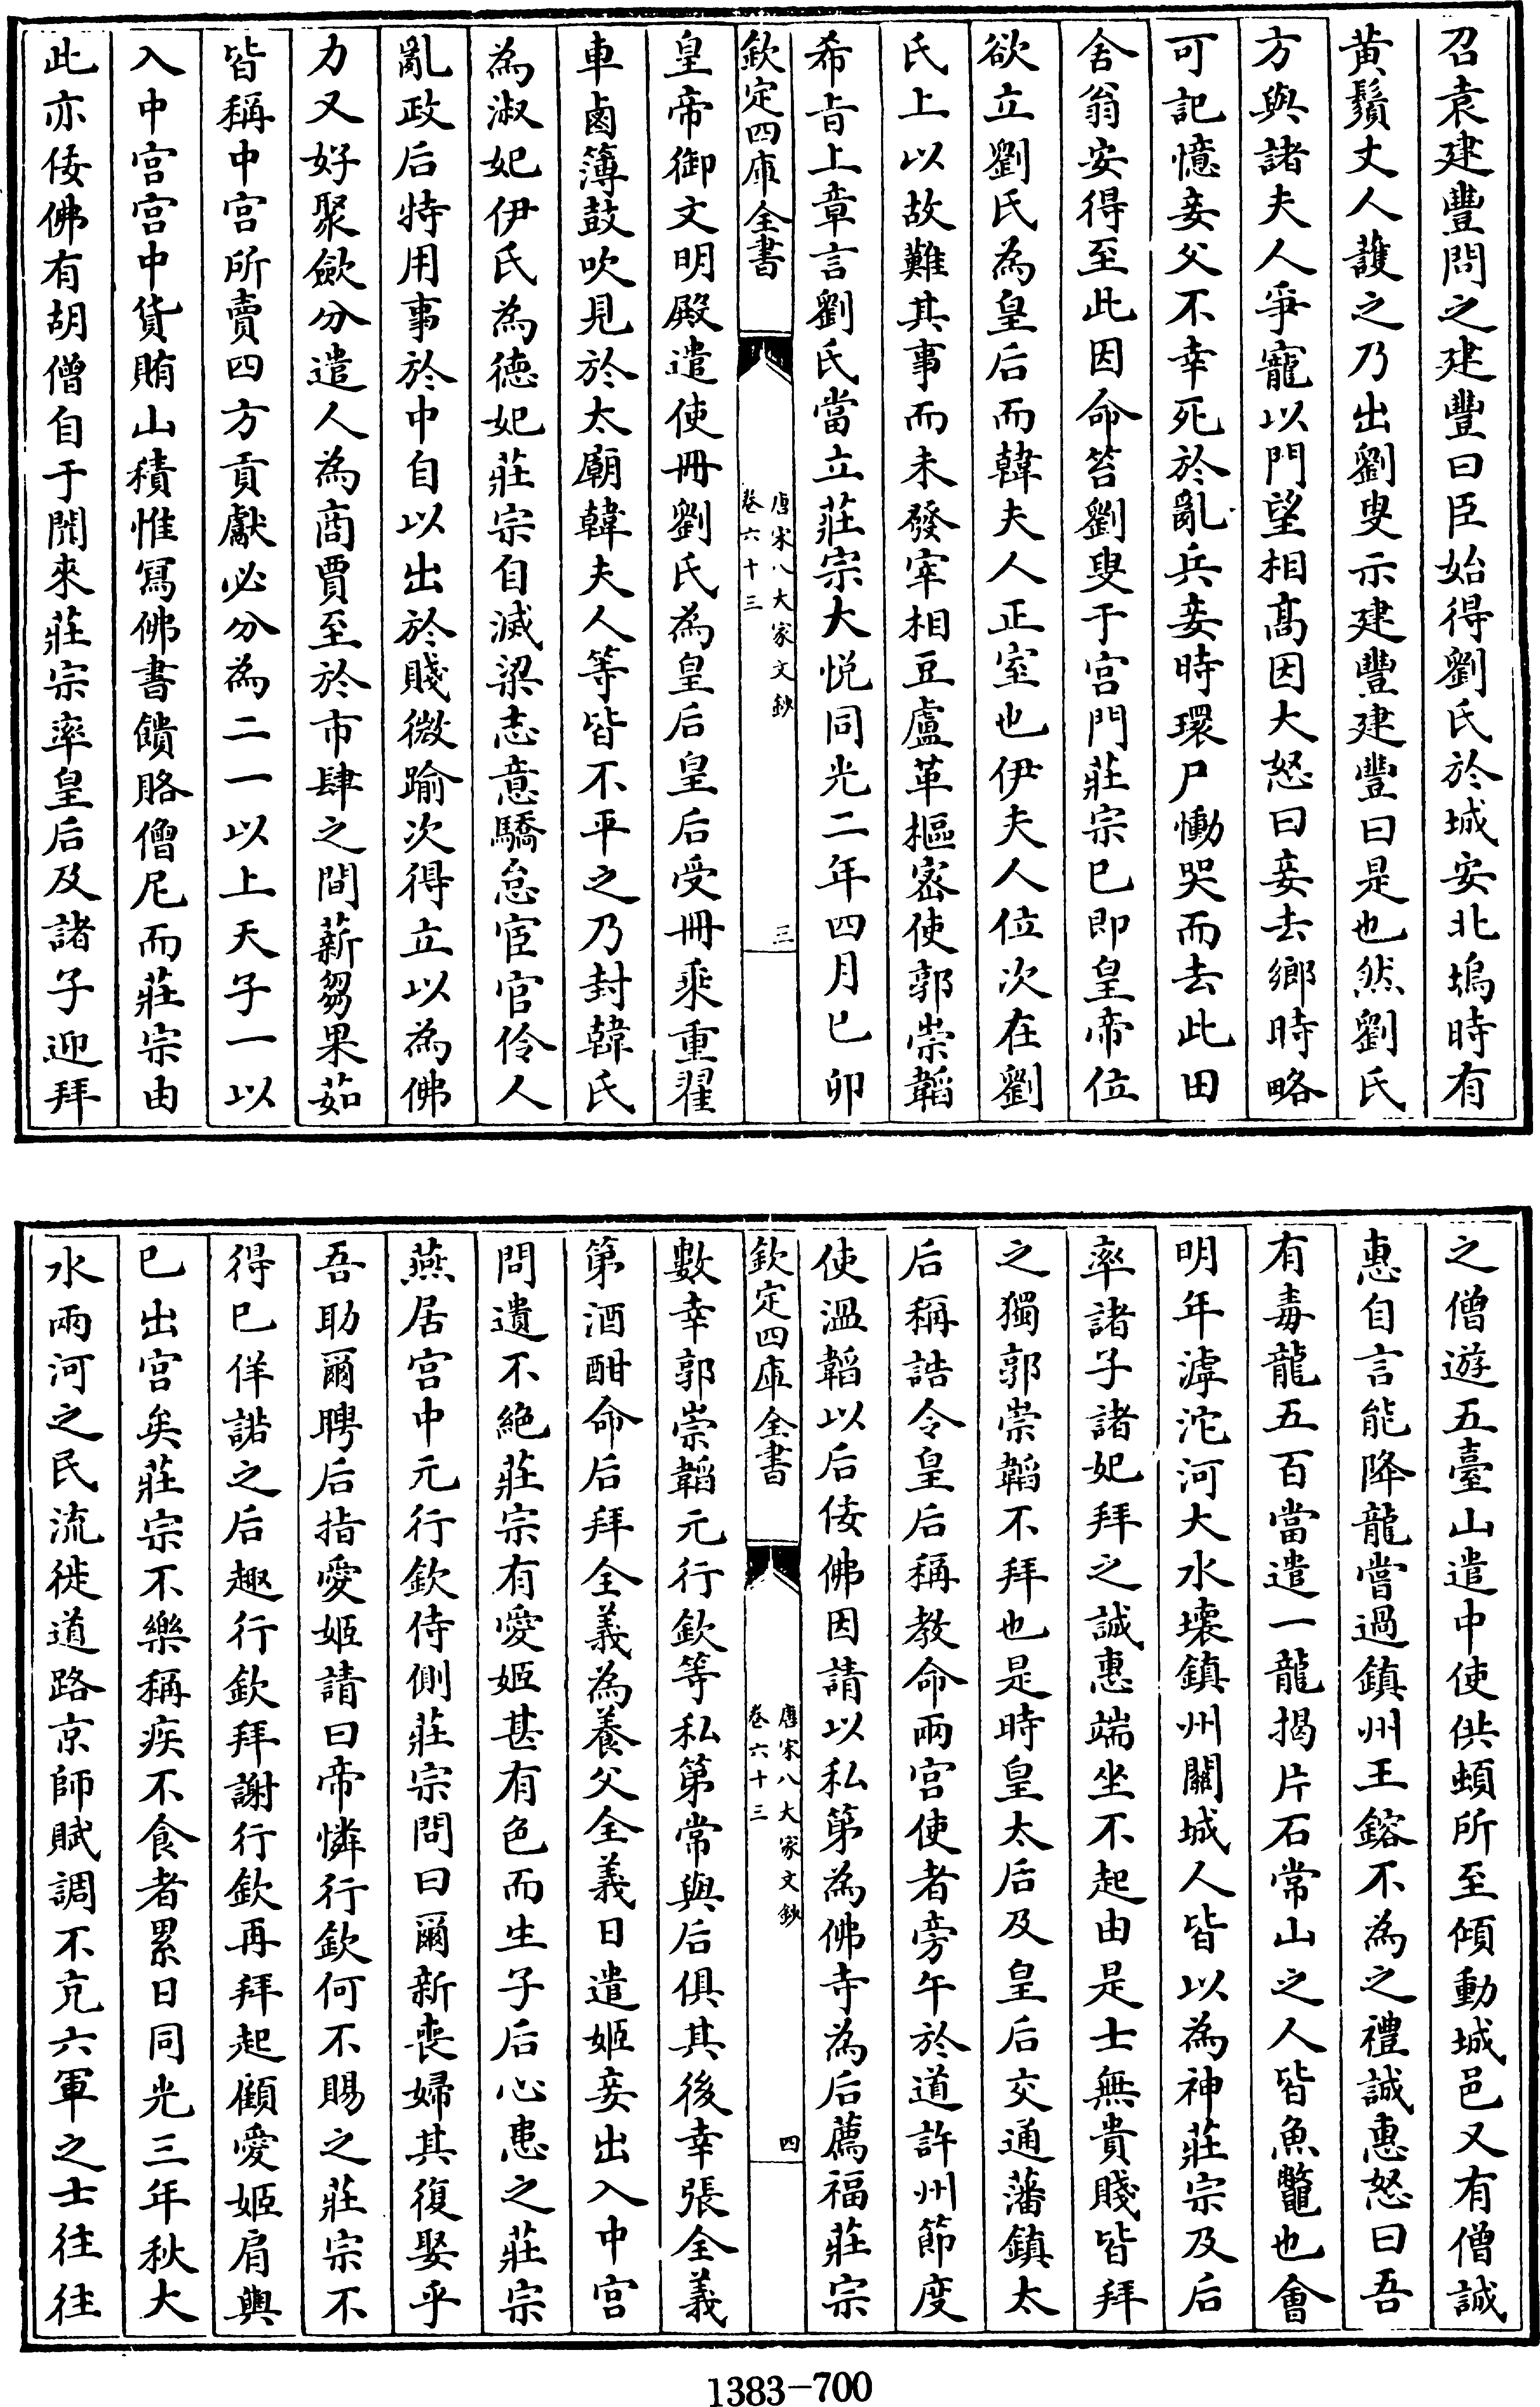 召袁建豐問之建豐曰臣始得劉氏於城安北塢時有
黄鬚丈人護之乃出劉叟示建豐建豐曰是也然劉氏
方與諸夫人爭寵以門望相髙因大怒曰妾去鄉時略
可記憶妾父不幸死於亂兵妾時環尸慟哭而去此田
舍翁安得至此因命笞劉叟于宫門莊宗已即皇帝位
欲立劉氏為皇后而韓夫人正室也伊夫人位次在劉
氏上以故難其事而未發宰相豆盧革樞宻使郭崇韜
希㫖上章言劉氏當立莊宗大悦同光二年四月已卯
欽定四庫全書
唐宋八大家文鈔
卷六十三
三
皇帝御文明殿遣使冊劉氏為皇后皇后受冊乘重翟
車鹵簿鼓吹見於太廟韓夫人等皆不平之乃封韓氏
為淑妃伊氏為德妃莊宗自滅梁志意驕怠宦官伶人
亂政后特用事於中自以出於賤微踰次得立以為佛
力又好聚歛分遣人為商賈至於市肆之間薪芻果茹
皆稱中宫所賣四方貢獻必分為二一以上天子一以
入中宫宫中貨賄山積惟寫佛書饋賂僧尼而莊宗由
此亦佞佛有胡僧自于闐來莊宗率皇后及諸子迎拜
之僧遊五臺山遣中使供頓所至傾動城邑又有僧誠
惠自言能降龍嘗過鎮州王鎔不為之禮誠惠怒曰吾
有毒龍五百當遣一龍揭片石常山之人皆魚鼈也會
明年滹沱河大水壞鎮州關城人皆以為神莊宗及后
率諸子諸妃拜之誠惠端坐不起由是士無貴賤皆拜
之獨郭崇韜不拜也是時皇太后及皇后交通藩鎮太
后稱誥令皇后稱教命兩宫使者旁午於道許州節度
使温韜以后佞佛因請以私第為佛寺為后薦福莊宗
欽定四庫全書
唐宋八大家文鈔
卷六十三
四
數幸郭崇韜元行欽等私第常與后俱其後幸張全義
第酒酣命后拜全義為養父全義日遣姬妾出入中宫
問遺不絶莊宗有愛姬甚有色而生子后心患之莊宗
燕居宫中元行欽侍側莊宗問曰爾新喪婦其復娶乎
吾助爾聘后指愛姬請曰帝憐行欽何不賜之莊宗不
得已佯諾之后趣行欽拜謝行欽再拜起顧愛姬肩輿
已出宫矣莊宗不樂稱疾不食者累日同光三年秋大
水兩河之民流徙道路京師賦調不充六軍之士往往
1383-700